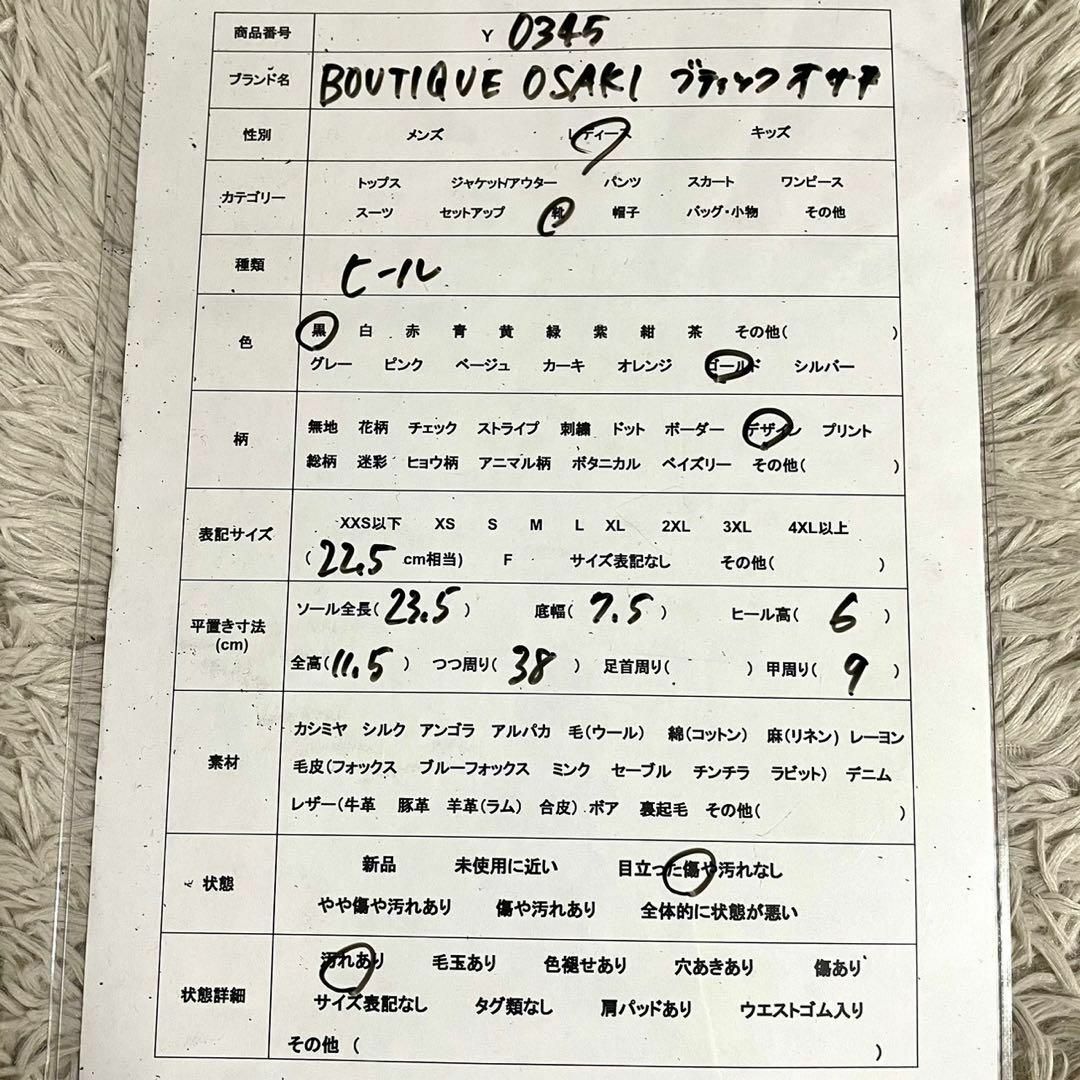 商品番号 Y 0345
ブランド名 BOUTIQUE OSAKI ブティックオサキ
性別 メンズ レディース キッズ
カテゴリー トップス ジャケット/アウター パンツ スカート ワンピース
スーツ セットアップ 靴 帽子 バッグ・小物 その他
種類 ヒール
色 黒 白 赤 青 黄 緑 紫 紺 茶 その他( )
グレー ピンク ベージュ カーキ オレンジ ゴールド シルバー
柄 無地 花柄 チェック ストライプ 刺繍 ドット ボーダー デザイン プリント
総柄 迷彩 ヒョウ柄 アニマル柄 ボタニカル ペイズリー その他( )
表記サイズ XXS以下 XS S M L XL 2XL 3XL 4XL以上
( 22.5 cm相当) F サイズ表記なし その他( )
平置き寸法 (cm) ソール全長( 23.5 ) 底幅( 7.5 ) ヒール高( 6 )
全高( 11.5 ) つつ周り( 38 ) 足首周り( ) 甲周り( 9 )
素材 カシミヤ シルク アンゴラ アルパカ 毛(ウール) 綿(コットン) 麻(リネン) レーヨン
毛皮(フォックス ブルーフォックス ミンク セーブル チンチラ ラビット) デニム
レザー(牛革 豚革 羊革(ラム) 合皮) ボア 裏起毛 その他( )
状態 新品 未使用に近い 目立った傷や汚れなし
やや傷や汚れあり 傷や汚れあり 全体的に状態が悪い
状態詳細 汚れあり 毛玉あり 色褪せあり 穴あきあり 傷あり
サイズ表記なし タグ類なし 肩パッドあり ウエストゴム入り
その他 ( )